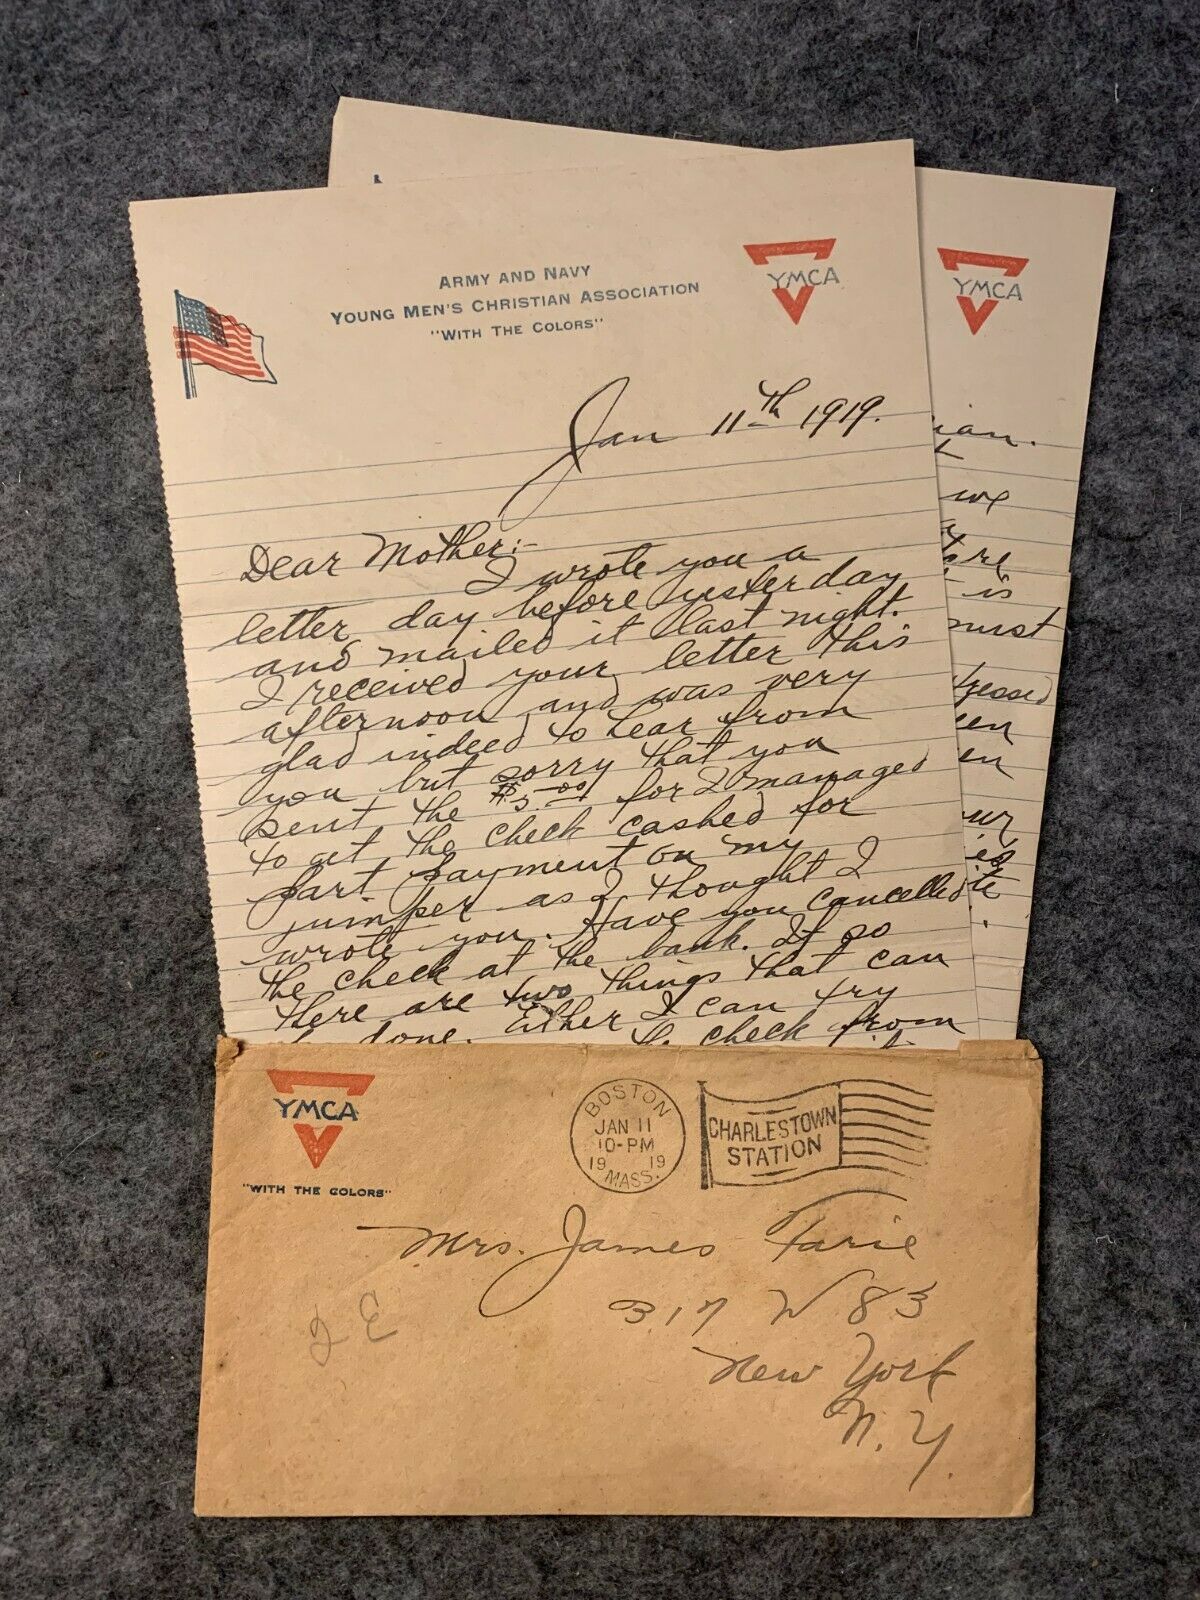 ARMY AND NAVY
YOUNG MEN'S CHRISTIAN ASSOCIATION
"WITH THE COLORS"
YMCA
Jan 11th 1919.
Dear Mother:-
I wrote you a
letter day before yesterday
and mailed it last night.
I received your letter this
afternoon and was very
glad indeed to hear from
you but sorry that you
sent the $5.00 for I managed
to get the check cashed for
part payment on my
jumper as I thought I
wrote you. Have you cancelled
the check at the bank. If so
there are two things that can
be done. Either I can try
check from
YMCA
ian.
we
is
must
een
en
YMCA
"WITH THE COLORS"
BOSTON
JAN 11
10-PM
1919
MASS.
CHARLESTOWN
STATION
Mrs. James Farie
317 W 83
New York
N. Y.